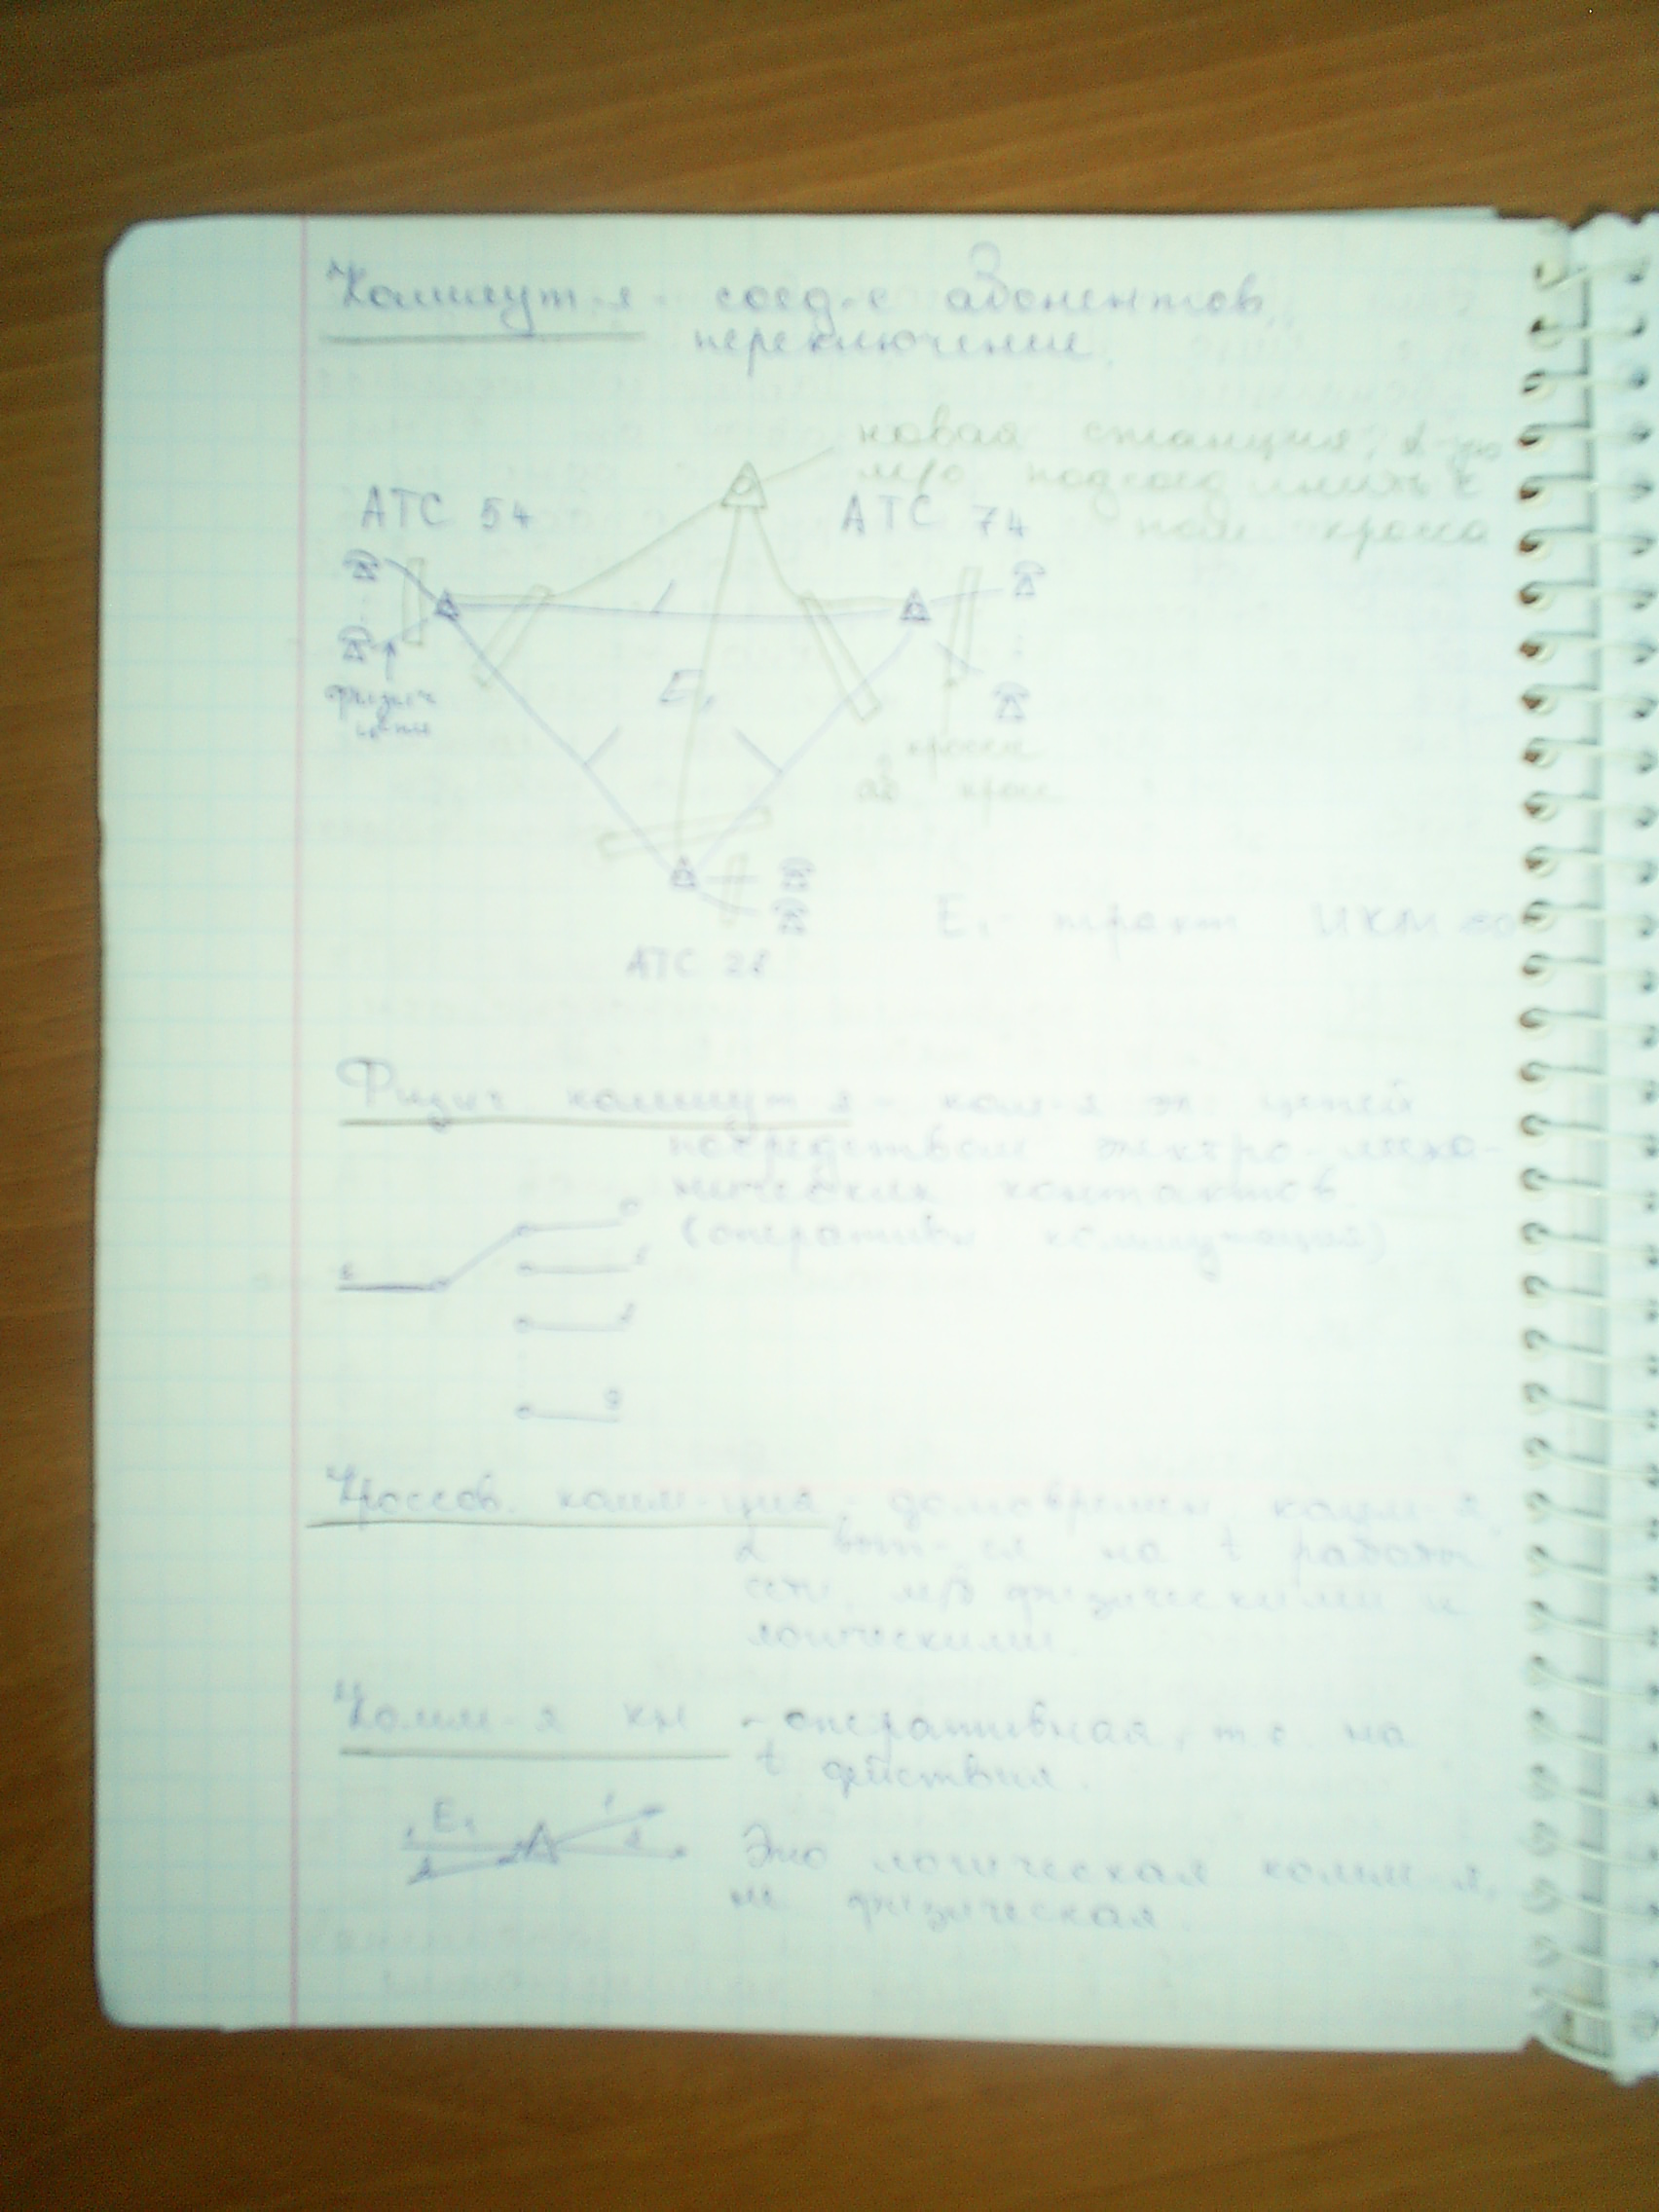 Коммут-я - соед-е абонентов,
переключение.
новая станция,
м/о подсоед
пом кросса
АТС 54
АТС 74
физич
цепи
E₁
кроссы
аб. крос
E₁ - тракт ИКМ 30
АТС 28
Физич коммут-я - ком-я эл цепей
посредством электро-меха-
нических контактов
(оперативн коммутаций)
0
1
2
9
Кроссов. комм-ция - долговремен. комм-я,
вып-ся на t работы
сети, м/б физическими и
логическими.
Комм-я кн - оперативная, т.е. на
t действия.
E₁
1
2
Это логическая комм-я,
не физическая.